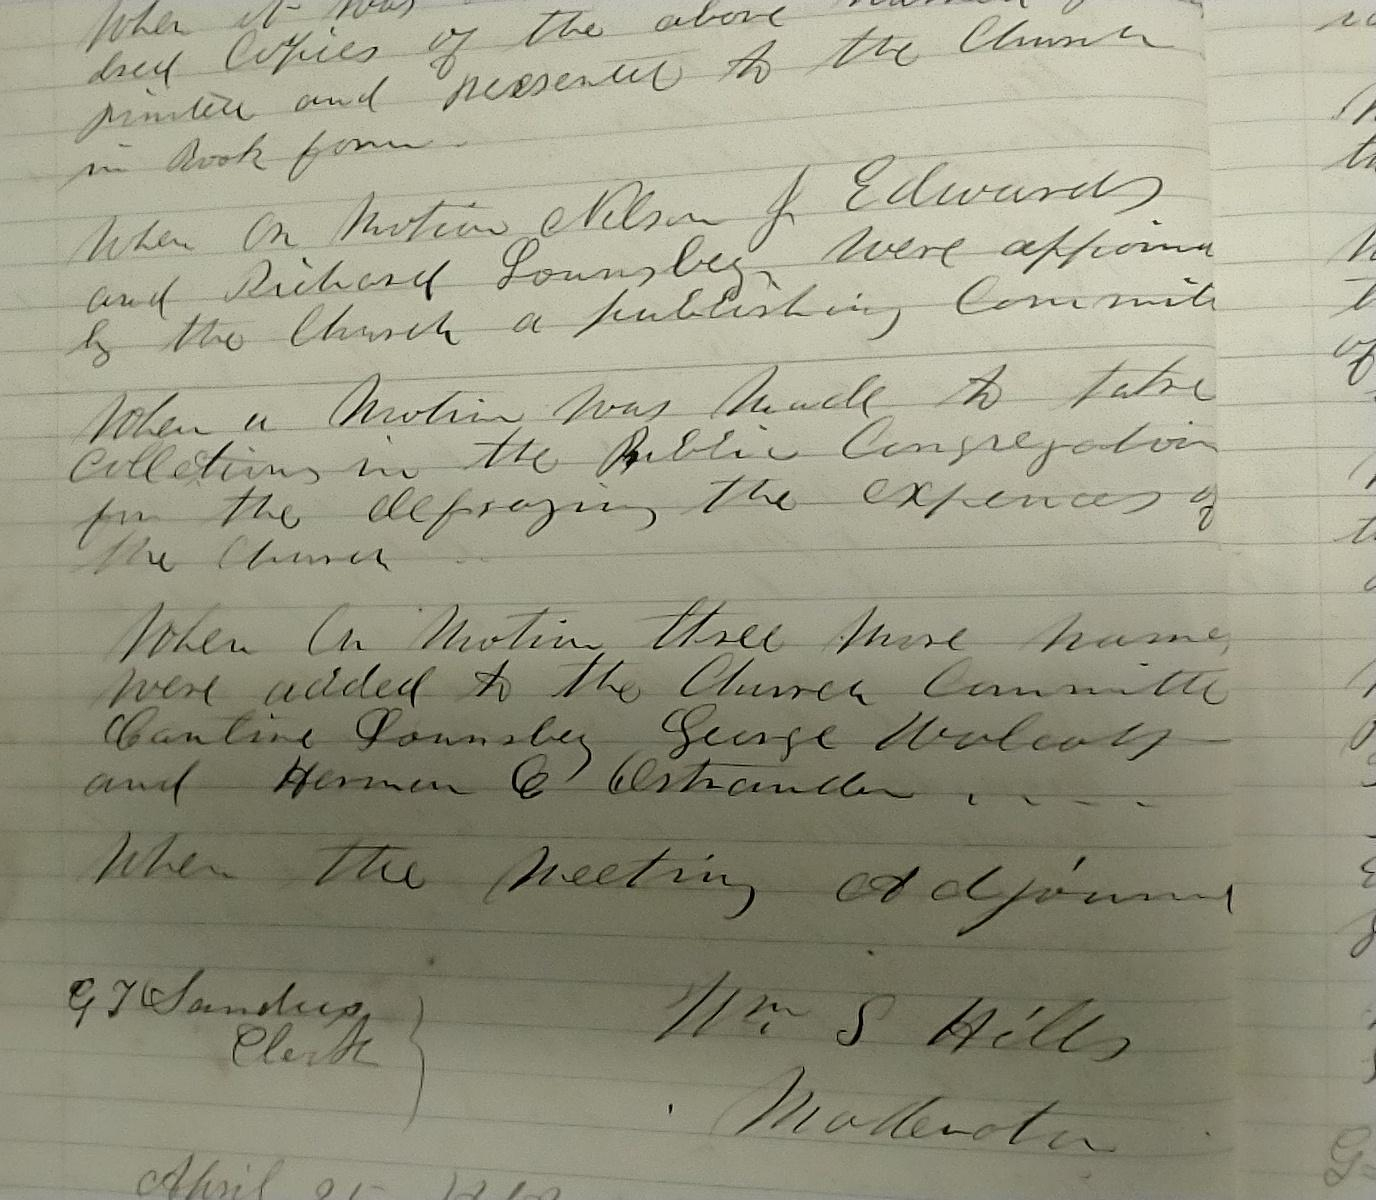 When it was
dred Copies of the above named
printed and pressented to the Church
in Book form.
When On Motion Nelson J Edwards
and Richard Lounsbey were appoint
by the Church a publishing Committe
When a Motion was Made to take
Colletions in the Public Congregation
for the defraying the expences of
the Church
When On Motion three more names
were added to the Church Committe
Cantine Lounsbey George Wolcott
and Hermen C Ostrander . . . .
When the Meeting Adjourned
G T Sandus
Clerk
Wm S Hills
Moderator
April